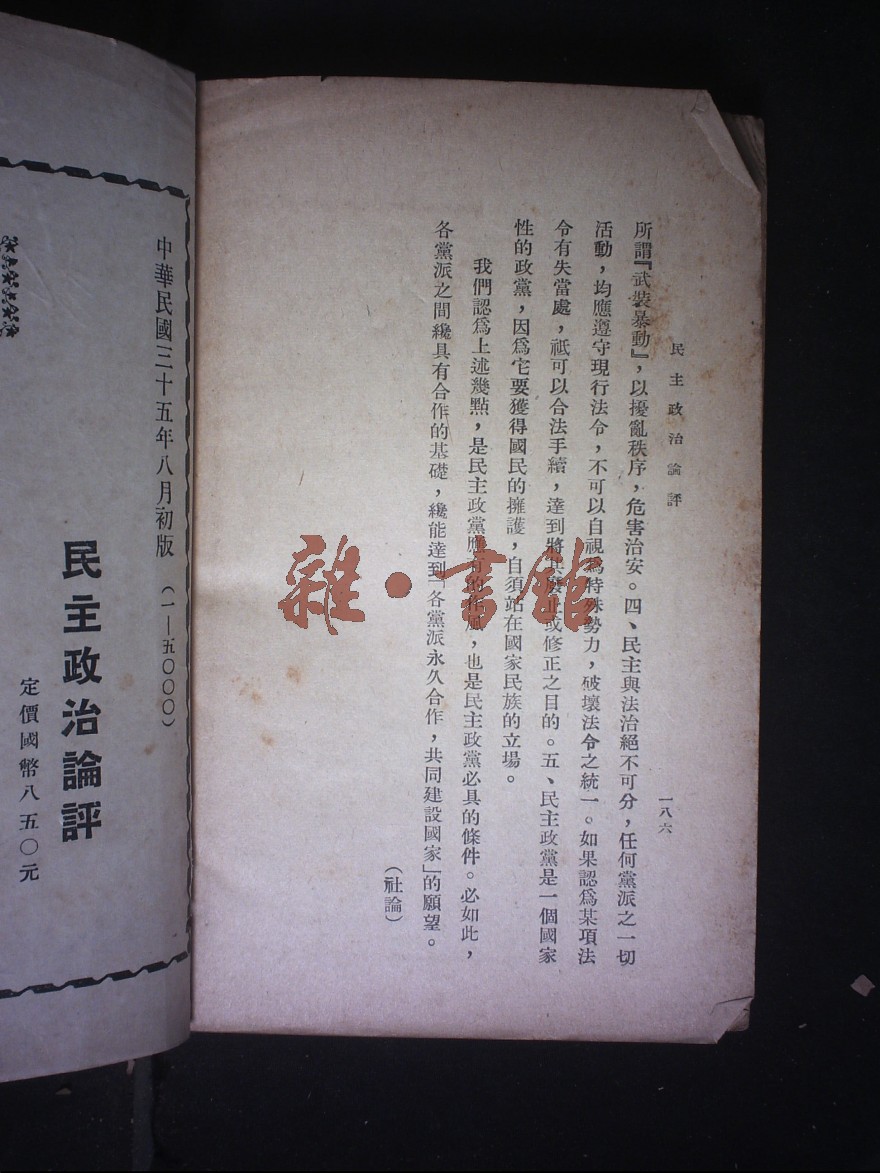 民主政治論評
一八六
所謂『武裝暴動』，以擾亂秩序，危害治安。四、民主與法治絕不可分，任何黨派之一切
活動，均應遵守現行法令，不可以自視爲特殊勢力，破壞法令之統一。如果認爲某項法
令有失當處，祇可以合法手續，達到將其廢止或修正之目的。五、民主政黨是一個國家
性的政黨，因爲它要獲得國民的擁護，自須站在國家民族的立場。
我們認爲上述幾點，是民主政黨應有的作風，也是民主政黨必具的條件。必如此，
各黨派之間纔具有合作的基礎，纔能達到「各黨派永久合作，共同建設國家」的願望。
（社論）
雜·書館
中華民國三十五年八月初版（一—五〇〇〇）
民主政治論評
定價國幣八五〇元